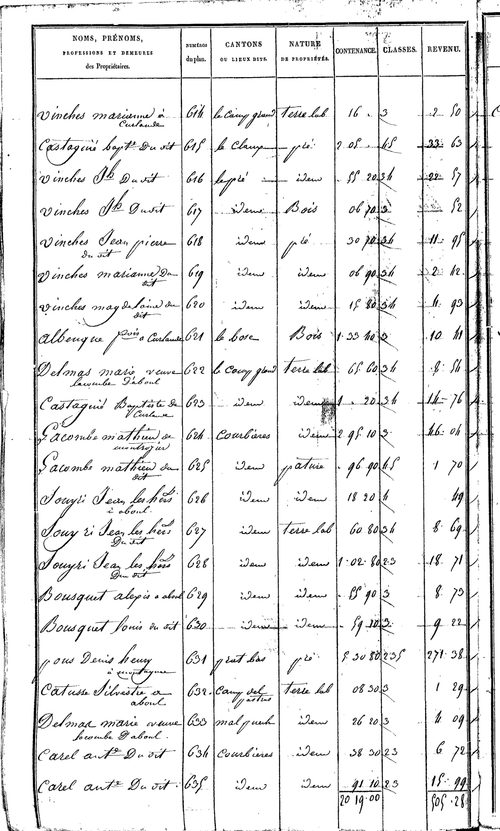 NOMS, PRÉNOMS, PROFESSIONS ET DEMEURES des Propriétaires. NUMÉROS du plan. CANTONS OU LIEUX DITS. NATURE DE PROPRIÉTÉS. CONTENANCE. CLASSES. REVENU.
Vinches marianne à Curlande 614 le camp grand terre lab 16 . 3 2 50
Castagnié bapte Du dit 615 le Clam pré 2 05 . 45 33 63
Vinches Jh Du dit 616 le pré idem . 55 20 34 22 57
Vinches Jh Du dit 617 idem Bois 06 70 3 52
Vinches Jean pierre du dit 618 idem pré 30 70 34 11 95
Vinches marianne du dit 619 idem idem 06 90 34 2 42
Vinches magdelaine du dit 620 idem idem 15 80 34 4 93
albenque fçois a Curlande 621 le bosc Bois 1 33 40 3 10 41
Delmas marie veuve lacombe D'aboul 622 le camp grand terre lab 65 60 34 8 54
Castagnié Baptiste de Curlande 623 idem idem 1 . 20 34 14 76
Lacombe mathieu de 624 Courbieres idem 2 95 10 3 46 04
Lacombe mathieu du dit 625 idem pature . 96 90 45 1 70
Jouyri Jean les hérs à aboul 626 idem idem 18 20 4 49
Jouyri Jean les hérs Du dit 627 idem terre lab 60 80 34 8 69
Jouyri Jean les hérs Du dit 628 idem idem 1 02 80 23 18 71
Bousquet alexis a aboul 629 idem idem 55 90 3 8 73
Bousquet louis du dit 630 idem idem . 59 10 3 9 22
pous Denis henry 631 prat bas pré 5 30 80 235 271 38
Catusse Silvestre a aboul 632 Camp del terre lab 08 30 3 1 29
Delmas marie veuve lacombe D'aboul 633 mal puech idem 26 20 3 4 09
Carel ante Du dit 634 Courbieres idem 38 30 23 6 72
Carel ante Du dit 635 idem idem 91 10 23 15 99
20 19 00 505 28